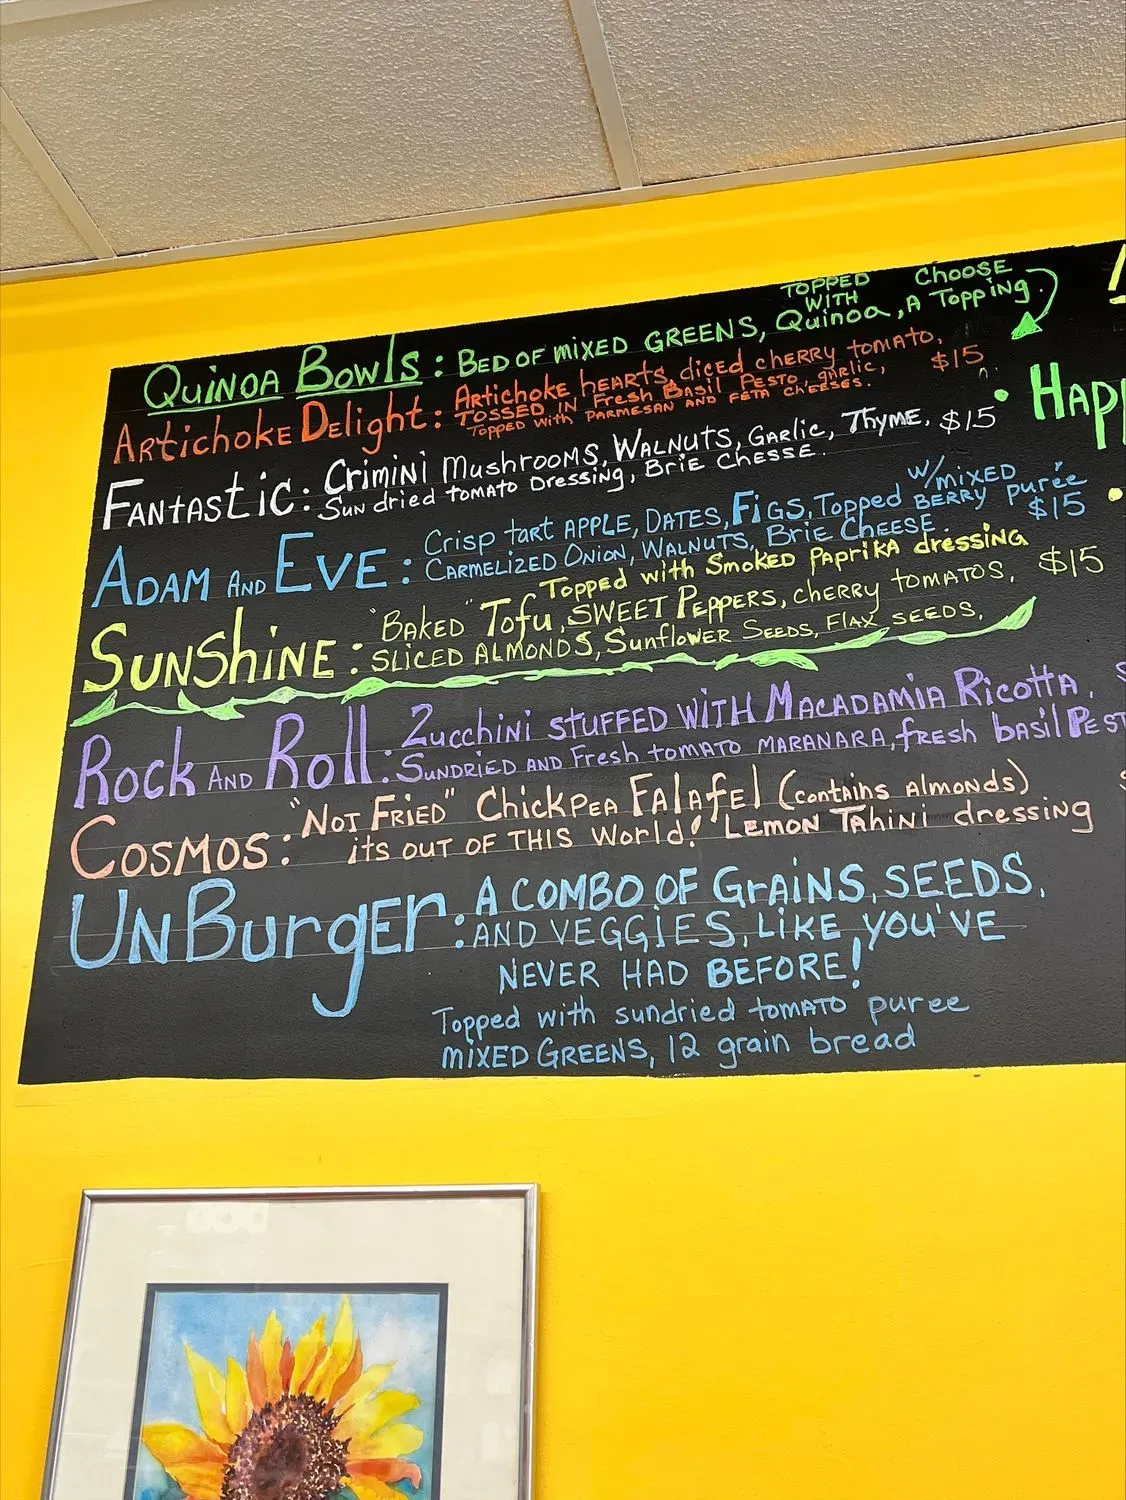 Quinoa Bowls: Bed of mixed greens, topped with Quinoa, Choose a Topping.
Artichoke Delight: Artichoke hearts, diced cherry tomato,
tossed in Fresh Basil Pesto, garlic, $15
Topped with parmesan and feta cheeses.
Fantastic: Crimini Mushrooms, Walnuts, Garlic, Thyme, $15
Sun dried tomato Dressing, Brie Chesse.
Adam and Eve: Crisp tart apple, Dates, Figs, Topped w/mixed berry purée
Carmelized Onion, Walnuts, Brie Cheese. $15
Topped with Smoked Paprika dressing
Sunshine: "Baked" Tofu, Sweet Peppers, cherry tomatos, $15
Sliced Almonds, Sunflower Seeds, Flax seeds,
Rock and Roll: Zucchini stuffed with Macadamia Ricotta,
Sundried and Fresh tomato maranara, fresh basil
Cosmos: "Not Fried" Chickpea Falafel (contains almonds)
its out of this world! Lemon Tahini dressing
UnBurger: A combo of Grains, Seeds,
and veggies, like you've
never had before!
Topped with sundried tomato puree
mixed greens, 12 grain bread